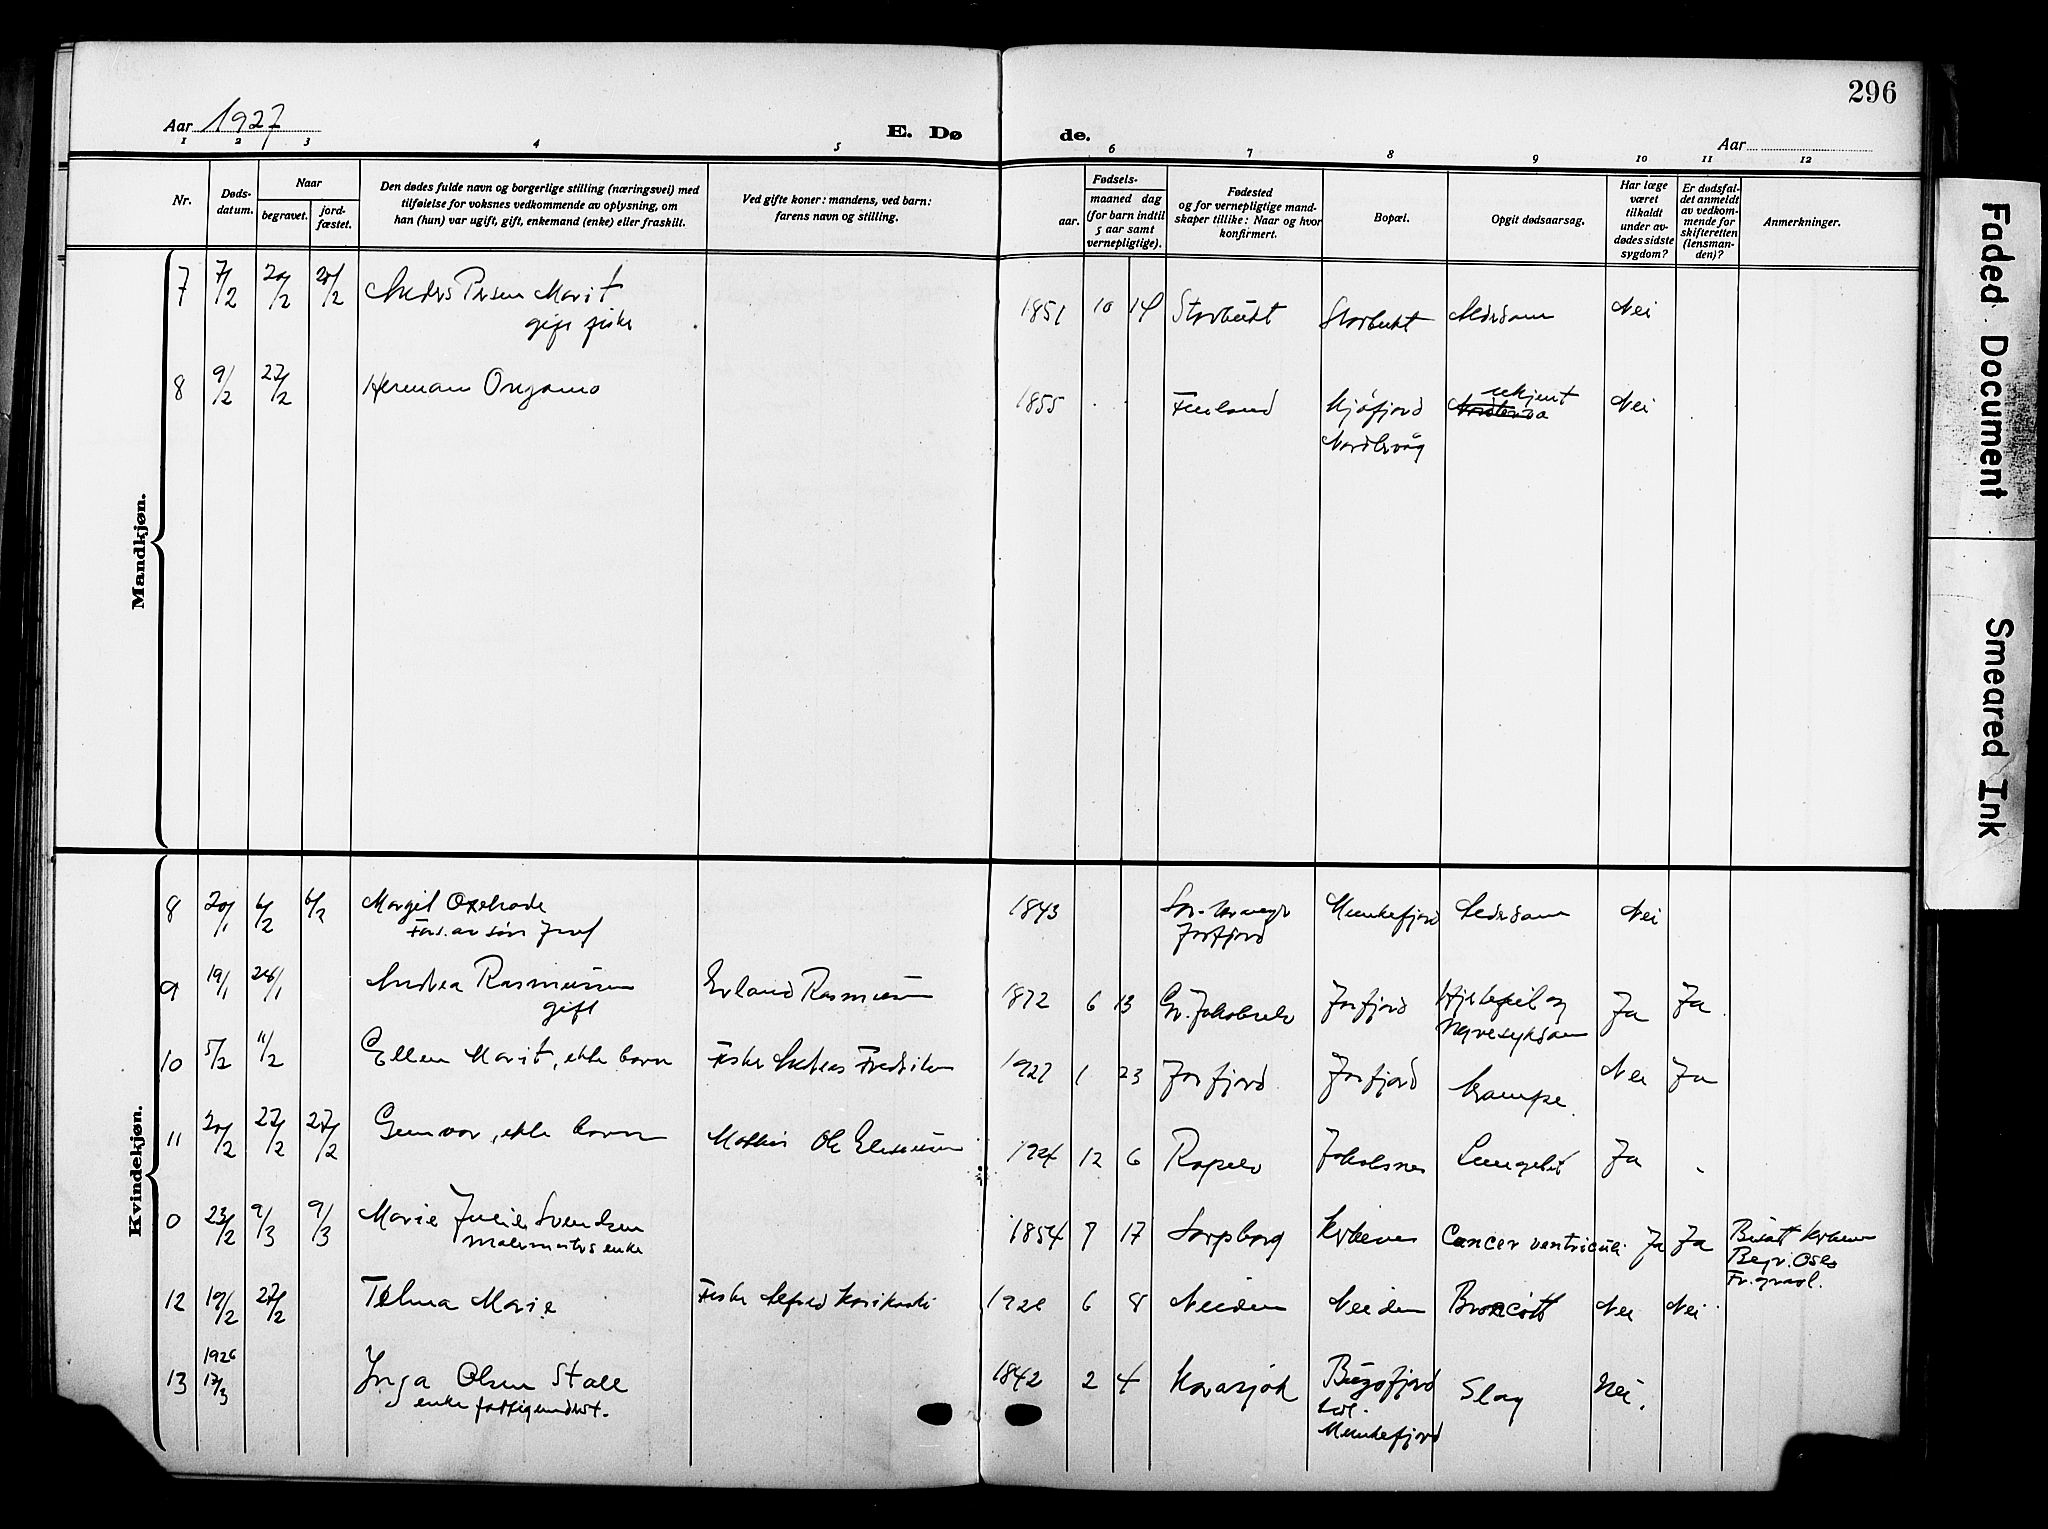 296
Aar 1927
E. Dø de.
Aar
1 2 3 4 5 6 7 8 9 10 11 12
Nr.
Døds-
datum.
Naar
begravet.
jord-
fæstet.
Den dødes fulde navn og borgerlige stilling (næringsvei) med
tilføielse for voksnes vedkommende av oplysning, om
han (hun) var ugift, gift, enkemand (enke) eller fraskilt.
Ved gifte koner: mandens, ved barn:
farens navn og stilling.
Fødsels-
aar. maaned dag
(for barn indtil
5 aar samt
vernepligtige).
Fødested
og for vernepligtige mand-
skaper tillike: Naar og hvor
konfirmert.
Bopæl.
Opgit dødsaarsag.
Har læge
været
tilkaldt
under av-
dødes sidste
sygdom?
Er dødsfal-
det anmeldt
av vedkom-
mende for
skifteretten
(lensman-
den)?
Anmerkninger.
Mandkjøn.
7 7/2 20/2 20/2 Anders Persen Marit 1851 10 14 Storbukt Storbukt Alderdom Nei
gift fisker
8 9/2 27/2 Herman 1855 Finland Kjøfjord ukjent Nei
Nordlevåg
Kvindekjøn.
8 20/1 6/2 6/2 Margit 1843 Sør-Varanger Munkefjord Alderdom Nei
Jarfjord
9 19/1 28/1 Andrea Rasmussen Erland Rasmussen 1872 6 13 Gr. Jakobselv Jarfjord Hjertefeil og Ja Ja
gift Nyresykdom
10 5/2 11/2 Ellen Marit, ekte barn Fisker Andreas Fredriksen 1927 1 23 Jarfjord Jarfjord Krampe Nei Ja
11 20/2 27/2 27/2 Gunvor, ekte barn Ole 1924 12 6 Ropelv Jakobsnes Lungebet Ja
0 23/2 9/3 9/3 Marie Julie Svendsen 1854 7 17 Sarpsborg Kirkenes Cancer ventriculi Ja Ja Bisatt Kirkenes
malermesters enke Begr. Oslo
Fr. gravl.
12 19/2 27/2 Telma Marie Fisker Alfred 192 6 8 Neiden Neiden Broncitt Nei Nei
1926
13 17/3 Inga Olsen Stall 1842 2 4 Karasjok Bugøfjord Slag Nei.
enke fattigunderst. Munkefjord
Faded Document
Smeared Ink